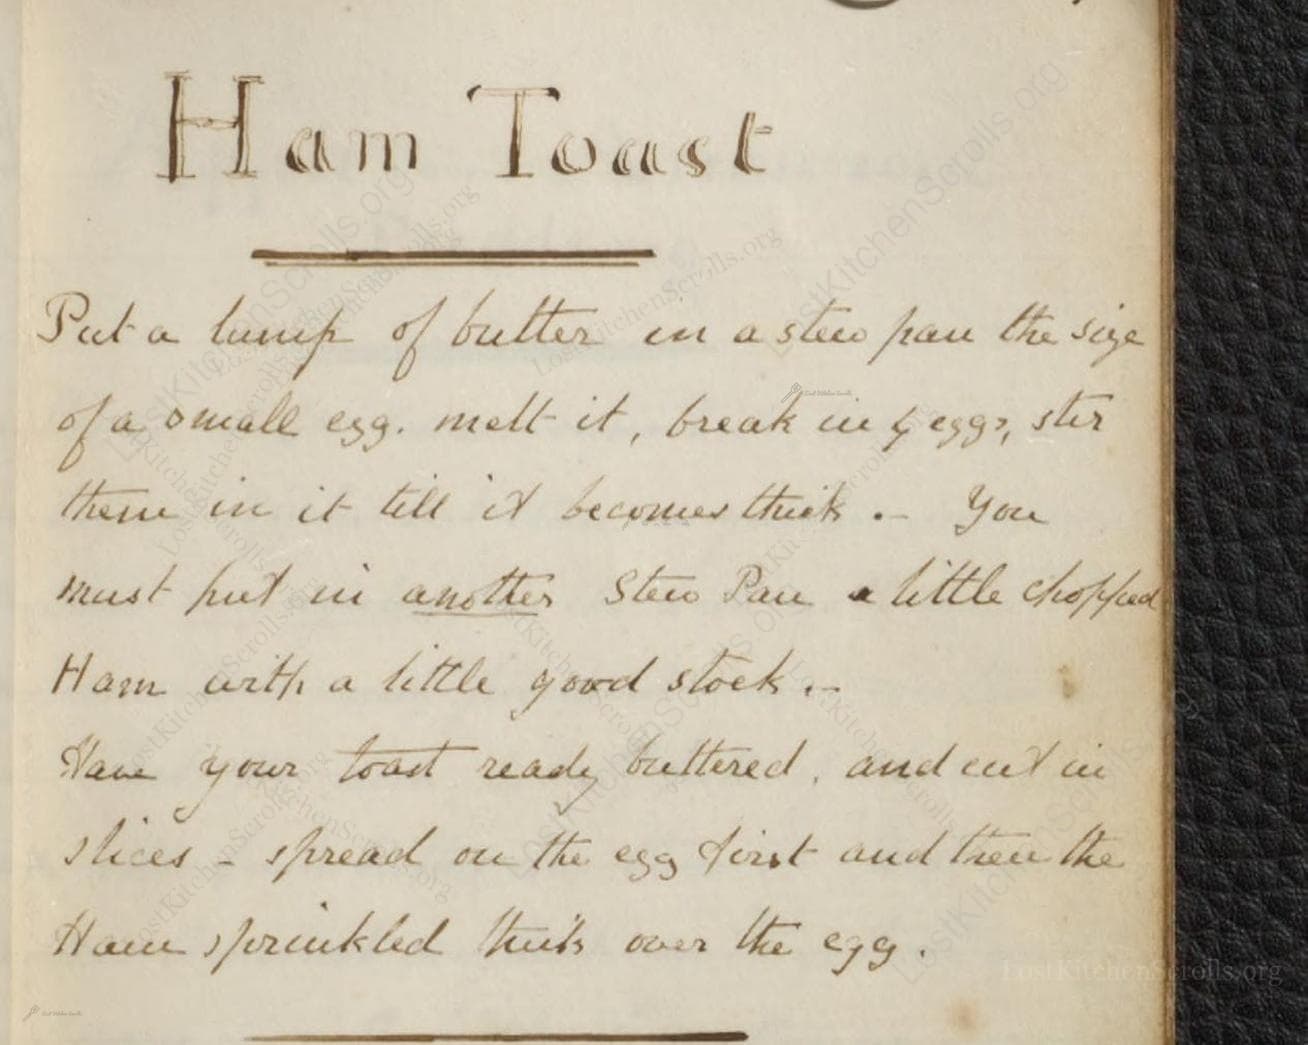 Ham Toast
Put a lump of butter in a stew pan the size
of a small egg. melt it, break in 4 eggs, stir
them in it till it becomes thick . – You
must put in another Stew Pan a little chopped
Ham with a little good stock . –
Have your toast ready buttered , and cut in
slices – spread on the egg first and then the
Ham sprinkled thick over the egg .
LostKitchenScrolls.org